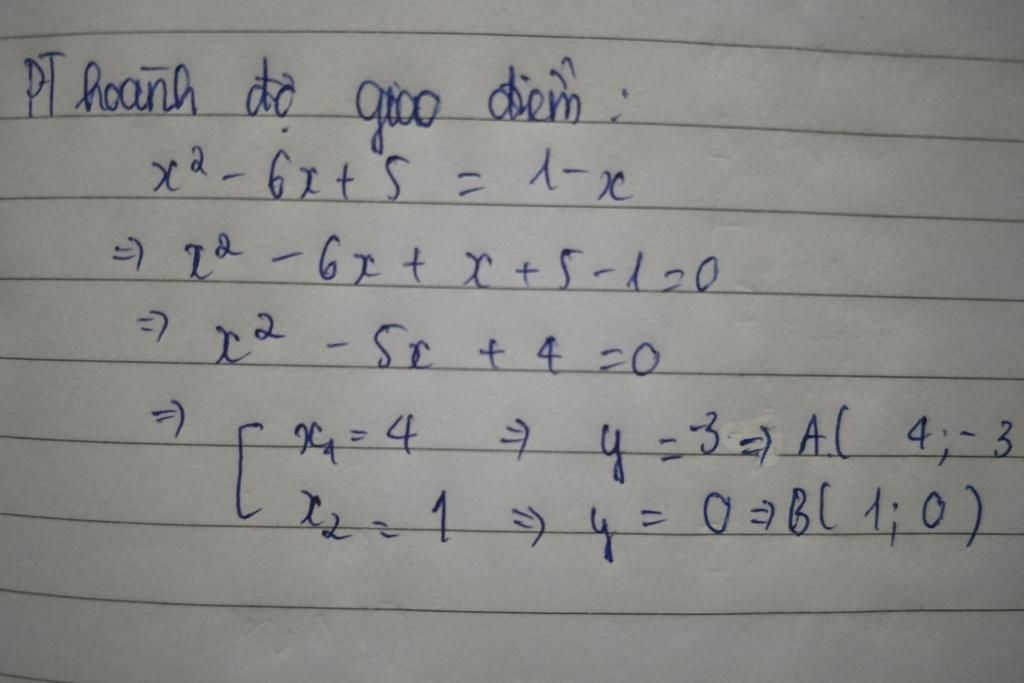 PT hoành độ giao điểm :
x² - 6x + 5 = 1 - x
=> x² - 6x + x + 5 - 1 = 0
=> x² - 5x + 4 = 0
=> [ x₁ = 4 => y = 3 => A( 4 ; -3
x₂ = 1 => y = 0 => B( 1 ; 0 )